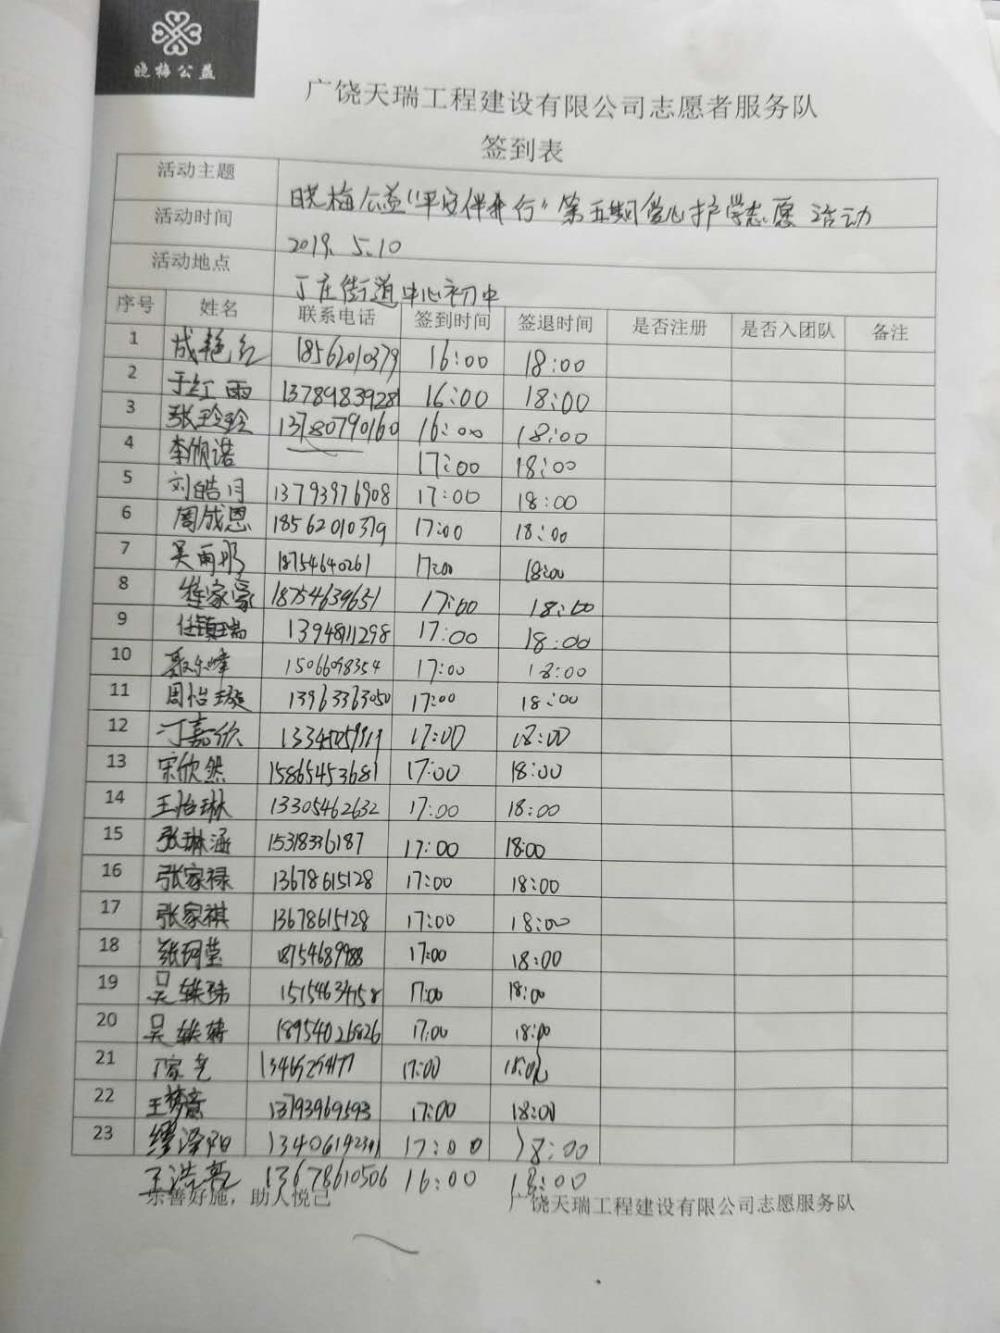 晓梅公益
广饶天瑞工程建设有限公司志愿者服务队
签到表
活动主题 晓梅公益“平安伴我行”第五期爱心护学志愿活动
活动时间 2019.5.10
活动地点 丁庄街道中心初中
序号 姓名 联系电话 签到时间 签退时间 是否注册 是否入团队 备注
1 成艳红 18562010379 16:00 18:00
2 于红雨 13789839281 16:00 18:00
3 张玲玲 13780790160 16:00 18:00
4 李欣诺 17:00 18:00
5 刘皓月 13793976908 17:00 18:00
6 周成恩 18562010379 17:00 18:00
7 吴雨彤 18754640261 17:00 18:00
8 家豪 18754639651 17:00 18:00
9 任镇瑞 13948111298 17:00 18:00
10 1506698354 17:00 18:00
11 周怡璇 13963363050 17:00 18:00
12 丁嘉欣 17:00 18:00
13 宋欣然 15865453681 17:00 18:00
14 王怡琳 13305462632 17:00 18:00
15 张琳涵 15318336187 17:00 18:00
16 张家禄 13678615128 17:00 18:00
17 张家祺 13678615128 17:00 18:00
18 张珂莹 18754689988 17:00 18:00
19 吴轶玮 15154634158 17:00 18:00
20 吴轶 18954026826 17:00 18:00
21 17:00 18:00
22 王梦意 13793969593 17:00 18:00
23 缪泽阳 17:00 18:00
王浩亮 13678610506 16:00 18:00
乐善好施，助人悦己 广饶天瑞工程建设有限公司志愿服务队